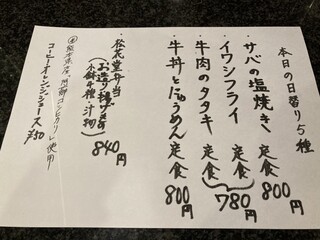 本日の日替り5種
・サバの塩焼き 定食 800円
・イワシフライ 定食
・牛肉のタタキ 定食 780円
・牛丼とにゅうめん 定食 800円
・松花堂弁当 840円
(お造り・揚げもの
小鉢4種・汁物)
使用
コーヒー・オレンジジュース ¥50